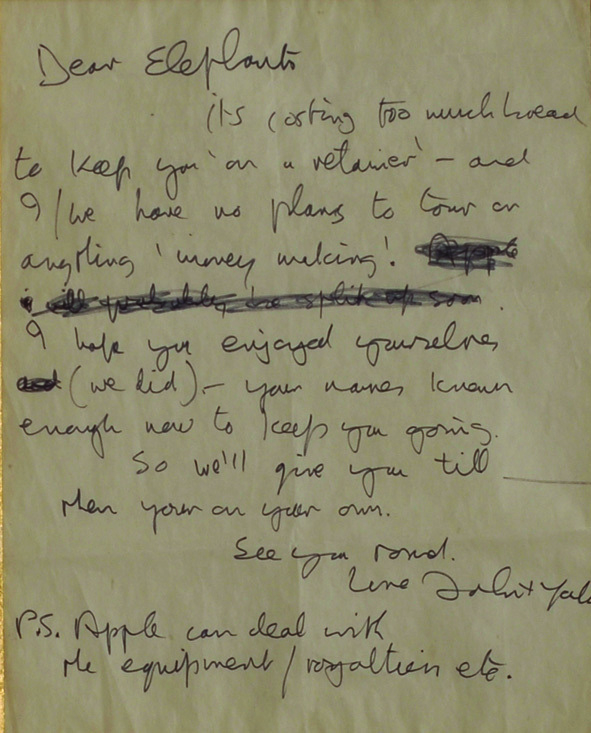 Dear Elephants
its costing too much bread
to keep you 'on a retainer' – and
I/we have no plans to tour or
anything 'money making'.
I hope you enjoyed yourselves
(we did) – your names known
enough now to keep you going.
So we'll give you till
then your on your own.
See you round.
love John + Yoko
P.S. Apple can deal with
the equipment / royalties etc.